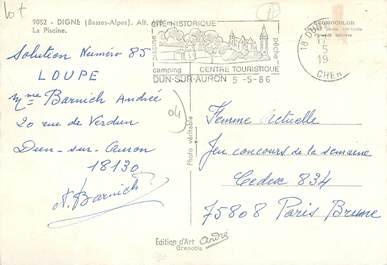 lot
9052 - DIGNE (Basses-Alpes). Alt.
La Piscine.
Solution Numéro 85
LOUPE
Mme Barnich André
20 rue de Verdun
Dun-sur-Auron
18130
A. Barnich
04
CITÉ HISTORIQUE
camping
pêche
CENTRE TOURISTIQUE
DUN-SUR-AURON 5-5-86
18 DUN
5
19
CHER
Photo véritable
Edition d'Art André
Grenoble
Femme Actuelle
Jeu concours de la semaine
Cedex 834
75808 Paris Brune